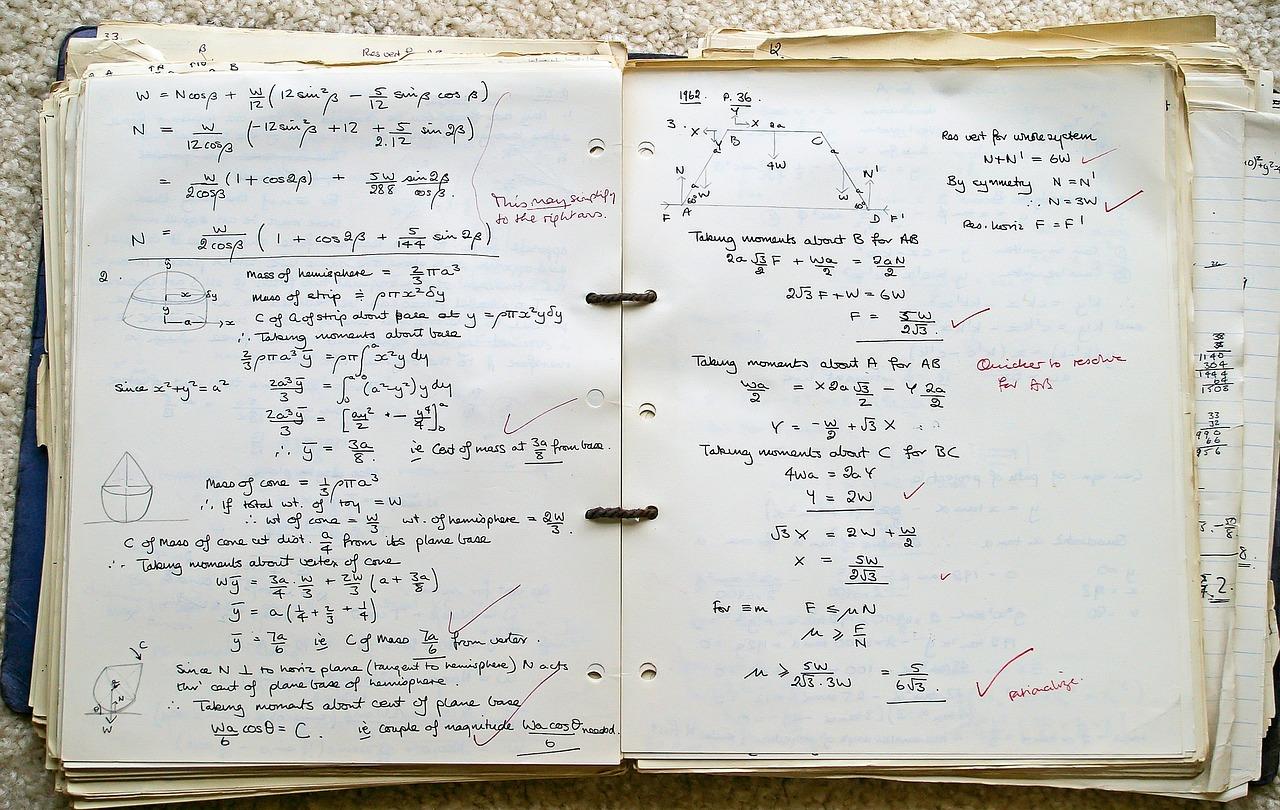 33.
β
Res vert
B
W = N cos β + W/12 (12 sin²β − 5/12 sin β cos β)
N = W/12cosβ (−12 sin²β + 12 + 5/2.12 sin 2β)
= W/2cosβ (1 + cos 2β) + 5W/288 sin2β/cosβ.
This may simplify
to the right ans.
N = W/2cosβ (1 + cos 2β + 5/144 sin 2β)
2.
y
x
δy
y
a
x
Mass of hemisphere = 2/3 πa³
Mass of strip ≑ ρπx²δy
C of G of strip about base at y = ρπx²yδy
∴ Taking moments about base
2/3 ρπa³ȳ = ρπ∫₀ᵃ x²y dy
Since x²+y² = a² 2a³ȳ/3 = ∫₀ᵃ (a²−y²) y dy
2a³ȳ/3 = [ay²/2 − y⁴/4]₀ᵃ
∴ ȳ = 3a/8 ie Cent of mass at 3a/8 from base.
Mass of cone = 1/3 ρπa³
∴ If total wt. of toy = W
∴ wt of cone = W/3 wt. of hemisphere = 2W/3.
C of Mass of cone at dist. a/4 from its plane base
∴ Taking moments about vertex of cone
Wȳ = 3a/4 · W/3 + 2W/3 (a + 3a/8)
ȳ = a(1/4 + 2/3 + 1/4)
ȳ = 7a/6 ie C of Mass 7a/6 from vertex.
C
N
θ
W
Since N ⊥ to horiz plane (tangent to hemisphere) N acts
thro' cent of plane base of hemisphere.
∴ Taking moments about cent of plane base
Wa/6 cos θ = C. ie couple of magnitude Wa cos θ/6 needed.
12.
1962. P. 36.
3.
Y
X X 2a
B C
a a
4W
N N'
a a
W W
60° 60°
F A D F'
Res vert for whole system
N+N' = 6W
By symmetry N = N'
∴ N = 3W
Res. horiz F = F'
Taking moments about B for AB
2a √3/2 F + Wa/2 = 2aN/2
2√3 F + W = 6W
F = 5W/2√3.
Taking moments about A for AB
Quicker to resolve
for AB
Wa/2 = X 2a √3/2 − Y 2a/2
Y = −W/2 + √3 X
Taking moments about C for BC
4Wa = 2aY
Y = 2W
√3 X = 2W + W/2
X = 5W/2√3
For ≡m F ≤ μN
μ ≥ F/N
μ ≥ 5W/2√3.3W = 5/6√3.
rationalize.
38
38
1140
304
1444
64
1508
33
32
990
66
956